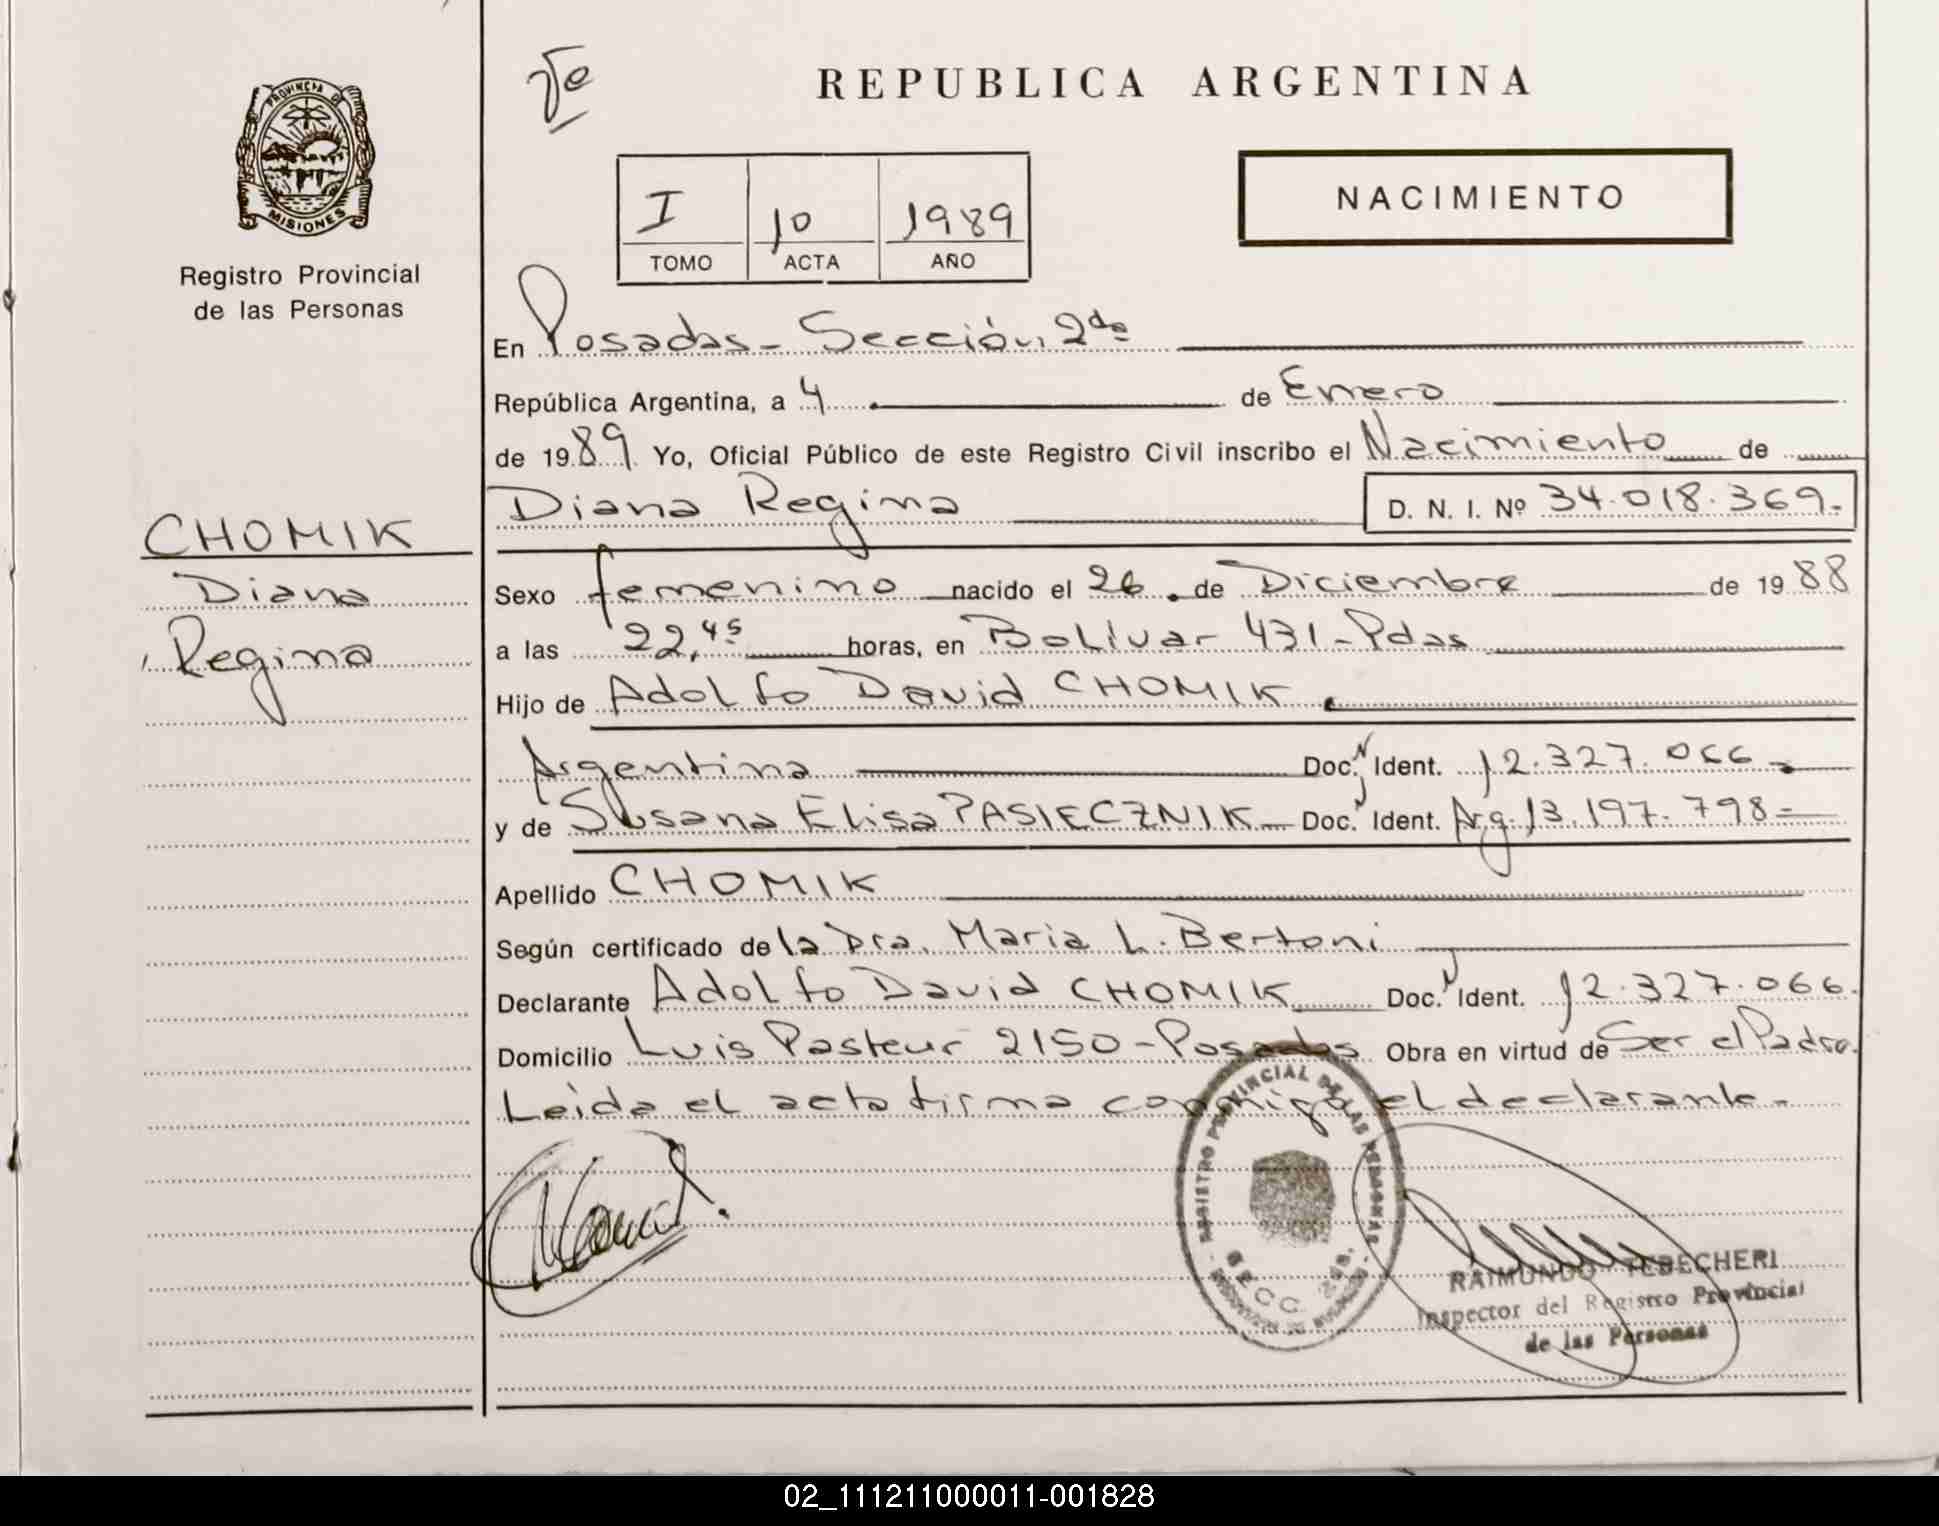 Te
REPUBLICA ARGENTINA
PROVINCIA DE
MISIONES
Registro Provincial
de las Personas
NACIMIENTO
I 10 1989
TOMO ACTA AÑO
En Posadas - Sección 2da
República Argentina, a 4 de Enero
de 1989 Yo, Oficial Público de este Registro Civil inscribo el Nacimiento de
Diana Regina D. N. I. Nº 34.018.369.-
CHOMIK
Diana
Regina
Sexo femenino nacido el 26 de Diciembre de 1988
a las 22,45 horas, en Bolívar 431 - Pdas
Hijo de Adolfo David CHOMIK
Argentina Doc. Ident. 12.327.066
y de Susana Elisa PASIECZNIK - Doc. Ident. Arg. 13.197.798=
Apellido CHOMIK
Según certificado de la Dra. Maria L. Bertoni
Declarante Adolfo David CHOMIK Doc. Ident. 12.327.066.
Domicilio Luis Pasteur 2150 - Posadas Obra en virtud de Ser el Padre.
Leida el acta firma conmigo el declarante.-
REGISTRO PROVINCIAL DE LAS PERSONAS
SECC. 2da.
RAIMUNDO TEBECHERI
Inspector del Registro Provincial
de las Personas
02_111211000011-001828